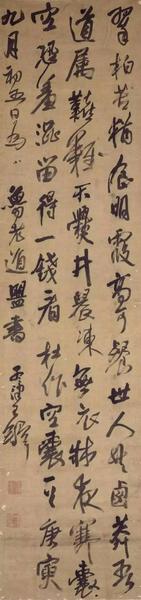 翠柏苦猶食明霞高可餐世人共鹵莽吾
道屬艱難不爨井晨凍無衣牀夜寒囊
空恐羞澀留得一錢看 杜作空囊 庚寅
九月初五日為 魯老道盟書 孟津王鐸